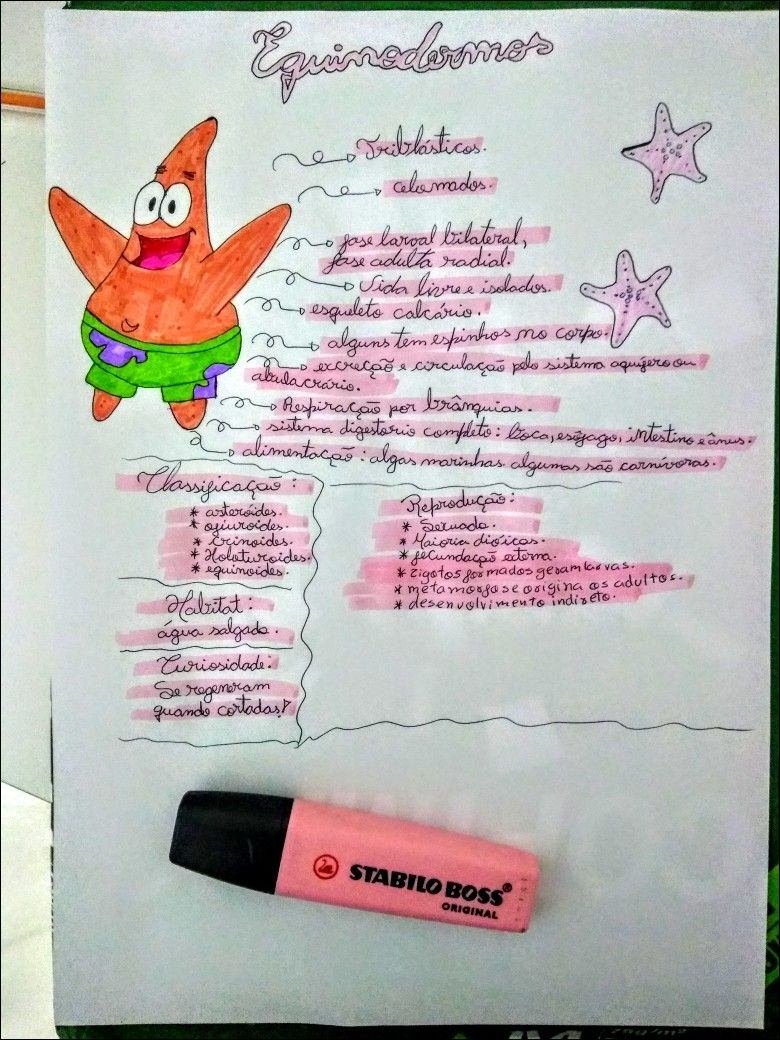 Equinodermos
Triblásticos.
celomados.
fase larval bilateral,
fase adulta radial.
Vida livre e isolados.
esqueleto calcário.
alguns tem espinhos no corpo.
excreção e circulação pelo sistema aquífero ou
abulacrário.
Respiração por brânquias.
sistema digestorio completo: boca, esôfago, intestino e ânus.
alimentação: algas marinhas. algumas são carnívoras.
Classificação:
* asteroides.
* ofiuroides.
* crinoides.
* Holoturoides.
* equinoides.
Habitat:
água salgada.
Curiosidade:
Se regeneram
quando cortadas!
Reprodução:
* Sexuada.
* Maioria dióicas.
* fecundação externa.
* zigotos formados geram larvas.
* metamorfose origina os adultos.
* desenvolvimento indireto.
STABILO BOSS®
ORIGINAL